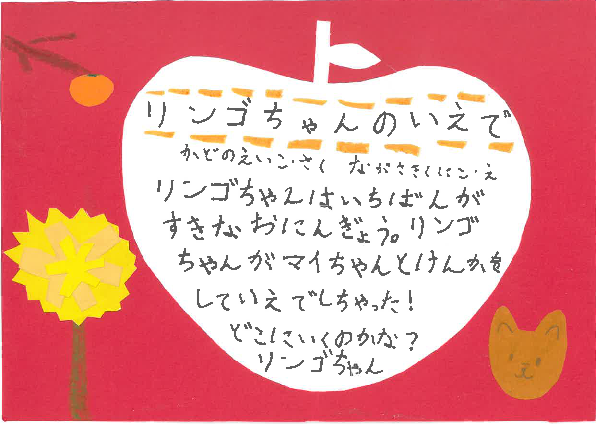 リンゴちゃんのいえで
かどのえいこ・さく ながさきくにこ・え
リンゴちゃんはいちばんが
すきなおにんぎょう。リンゴ
ちゃんがマイちゃんとけんかを
していえでしちゃった！
どこにいくのかな？
リンゴちゃん